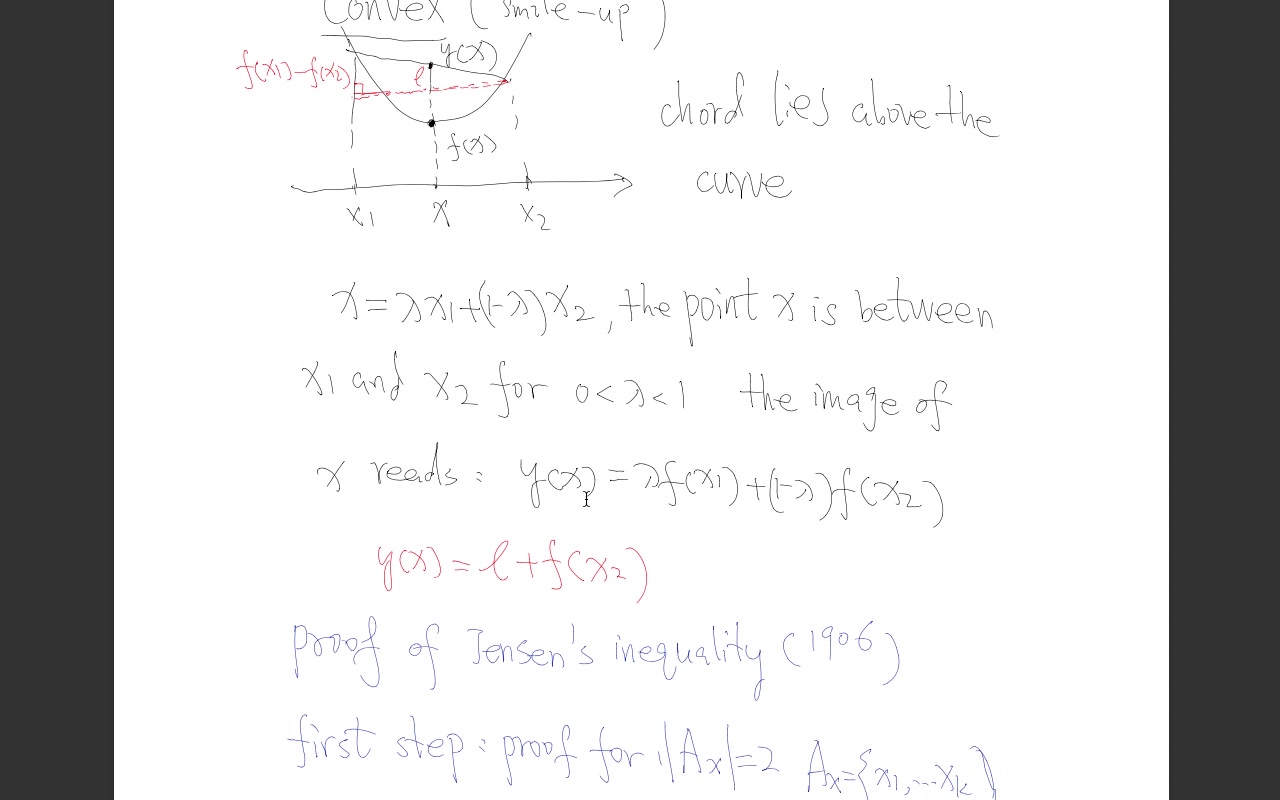 Convex (smile-up)
y(x)
f(x1)-f(x2)
l
chord lies above the
f(x)
curve
x1 x x2
x=λx1+(1-λ)x2, the point x is between
x1 and x2 for 0<λ<1 the image of
x reads: y(x)=λf(x1)+(1-λ)f(x2)
y(x)=l+f(x2)
proof of Jensen's inequality (1906)
first step: proof for |Ax|=2 Ax={x1,...xk}